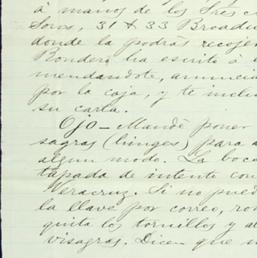 á manos de los Sres
Sons, 31 & 33 Broadw
donde la podrás recoger
Rondero ha escrito á
mendandote, anuncia
por la caja, y te inclu
su carta.
Ojo - Mandé poner
sagras (hinges) para a
algun modo. La boca
tapada de intento con
Veracruz. Si no pued
la llave por correo, ro
quita los tornillos y a
visagras. Dicen que